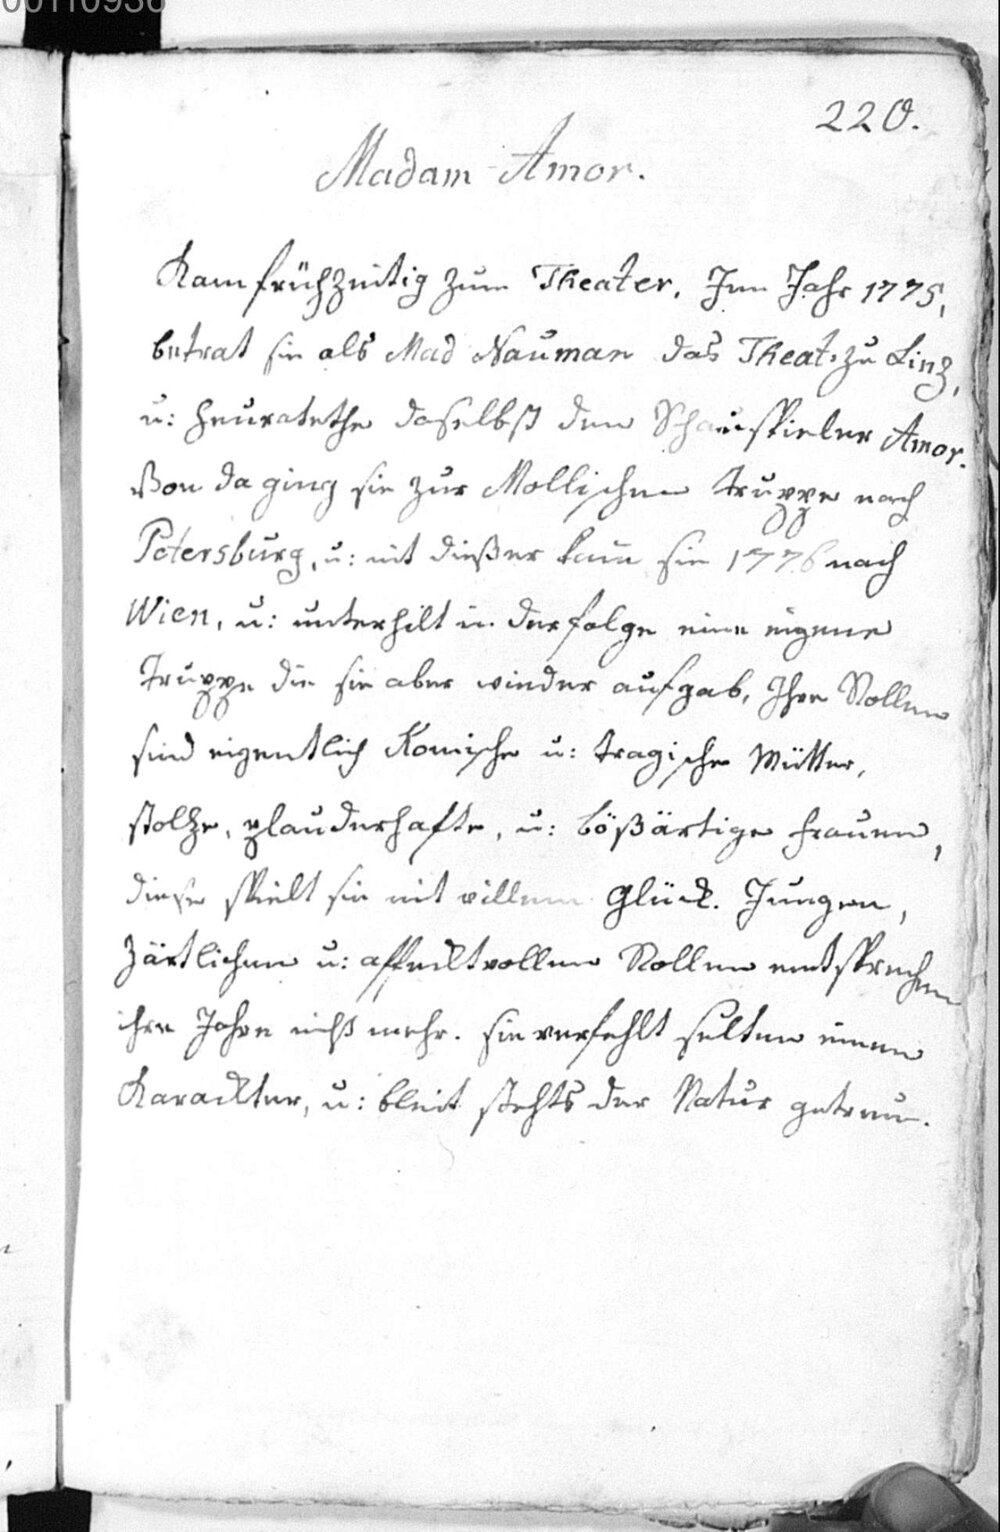 00110936
220.
Madam Amor.
Kam frühzeitig zum Theater. Im Jahr 1775,
betrat sie als Mad Nauman das Theat: zu Linz,
u: heuratethe daselbst den Schauspieler Amor.
Von da ging sie zur Mollischen Truppe nach
Petersburg, u: mit dießer kam sie 1776 nach
Wien, u: unterhilt in der folge eine eigene
Truppe die sie aber wieder aufgab. Ihre Rollen
sind eigentlich Komische u: tragische Mütter,
stolze, plauderhafte, u: bößärtige Frauen,
diese spielt sie mit villem Glück. Jungen,
zärtlichen u: affecktvollen Rollen entsprechen
ihre Jahre nicht mehr. sie verfehlt selten einen
Karackter, u: bleit stehts der Natur getreu.